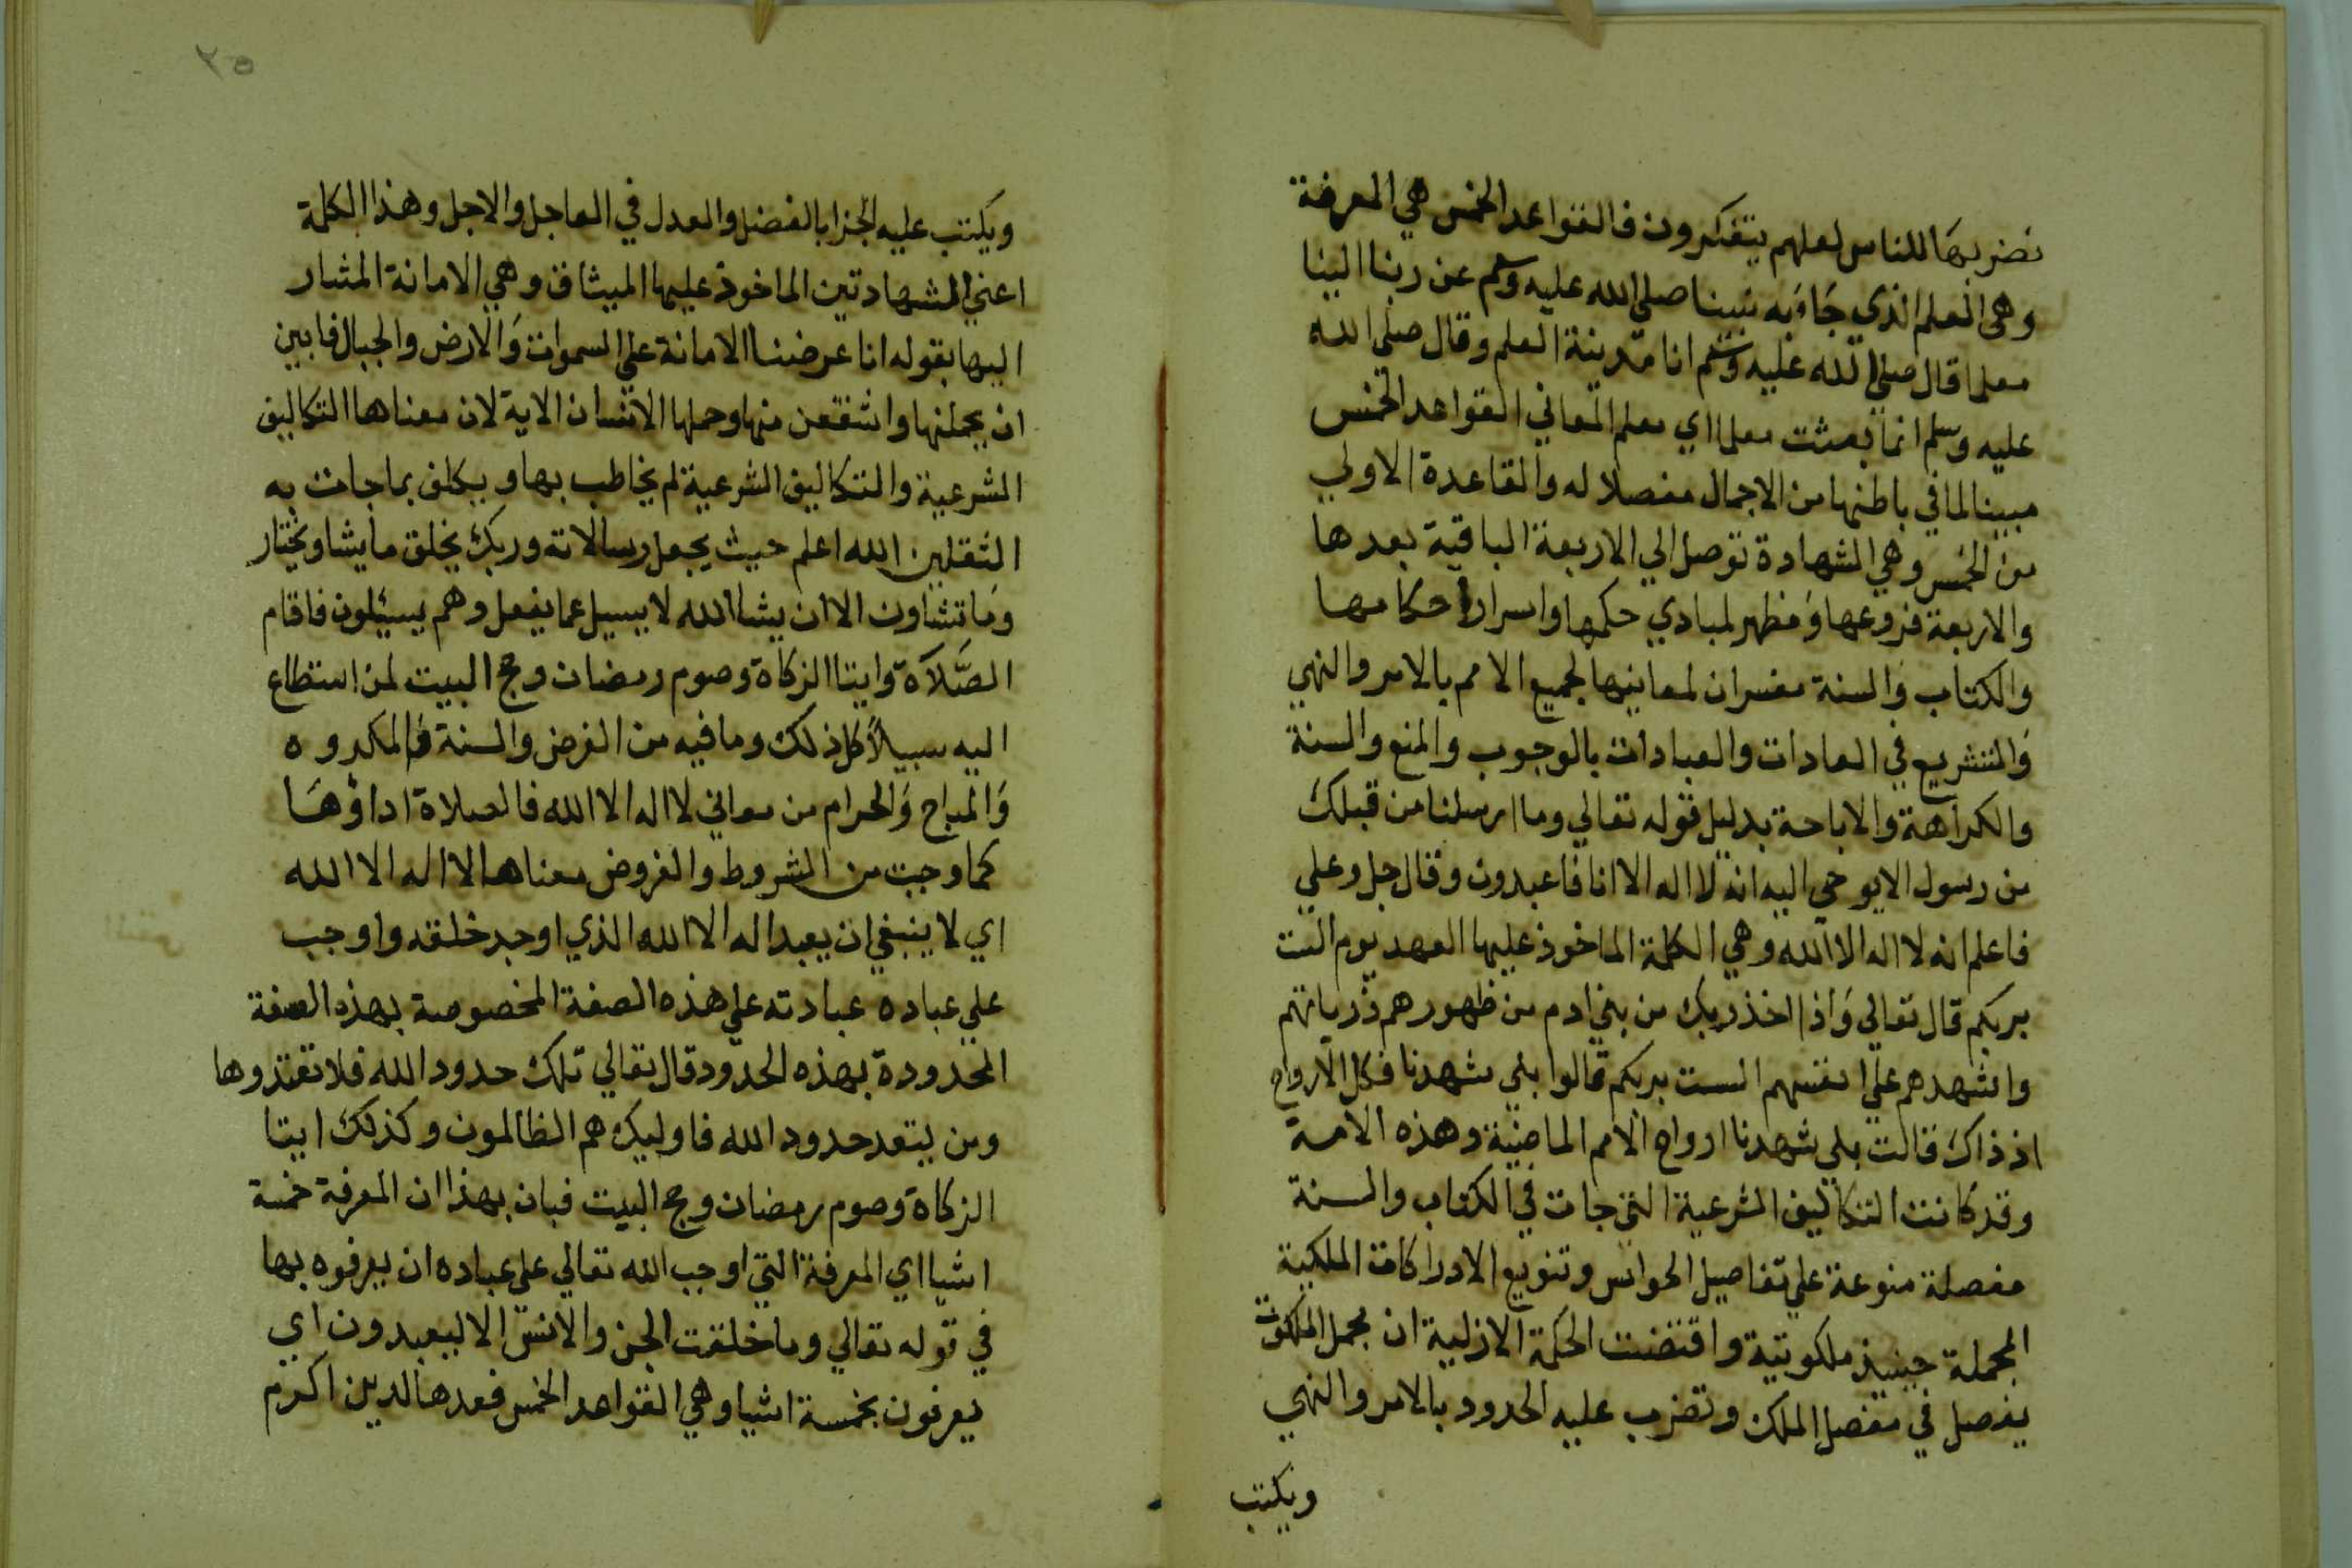 نضربها للناس لعلهم يتفكرون فالقواعد الخمس هي المعرفة
وهي العلم الذي جاء به نبينا صلى الله عليه وسلم عن ربنا الينا
معلما قال صلى الله عليه وسلم انا مدينة العلم وقال صلى الله
عليه وسلم انما بعثت معلما اي معلم المعاني القواعد الخمس
مبينا لما في باطنها من الاجمال مفصلا له والقاعدة الاولي
من الخمس وهي الشهادة توصل الي الاربعة الباقية بعدها
والاربعة فروعها ومظهر لمبادي حكمها واسرار احكامها
والكتاب والسنة مفسران لمعانيها لجميع الامم بالامر والنهي
والتشريع في العادات والعبادات بالوجوب والمنع والسنة
والكراهة والاباحة بدليل قوله تعالي وما ارسلنا من قبلك
من رسول الا يوحي اليه انه لا اله الا انا فاعبدون وقال جل وعلي
فاعلم انه لا اله الا الله وهي الكلمة الماخوذ عليها العهد يوم الست
بربكم قال تعالي واذ اخذ ربك من بني ادم من ظهورهم ذرياتهم
واشهدهم علي انفسهم الست بربكم قالوا بلي شهدنا فكل الارواح
اذ ذاك قالت بلي شهدنا ارواح الامم الماضية وهذه الامة
وقد كانت التكاليف الشرعية التي جات في الكتاب والسنة
مفصلة منوعة علي تفاصيل الحواس وتنويع الادراكات الملكية
المجملة حينيذ ملكوتية واقتضت الحكمة الازلية ان مجمل الملكوت
يفصل في مفصل الملك وتضرب عليه الحدود بالامر والنهي
ويكتب
٢٥
ويكتب عليه الجزا بالفضل والعدل في العاجل والاجل وهذا الكلمة
اعني الشهادتين الماخوذ عليها الميثاق وهي الامانة المشار
اليها بقوله انا عرضنا الامانة علي السموات والارض والجبال فابين
ان يحملنها واشفقن منها وحملها الانسان الاية لان معناها التكاليف
الشرعية والتكاليف الشرعية لم يخاطب بها ويكلف بما جات به
الثقلين الله اعلم حيث يجعل رسالاته وربك يخلق ما يشا ويختار
وما تشاون الا ان يشا الله لا يسيل عما يفعل وهم يسيلون فاقام
الصلاة وايتا الزكاة وصوم رمضان وحج البيت لمن استطاع
اليه سبيلا كل ذلك وما فيه من الفرض والسنة والمكروه
والمباح والحرام من معاني لا اله الا الله فالصلاة اداؤها
كما وجبت من الشروط والفروض معناها لا اله الا الله
اي لا ينبغي ان يعبد اله الا الله الذي اوجد خلقه واوجب
علي عباده عبادته علي هذه الصفة المخصوصة بهذه الصفة
المحدودة بهذه الحدود قال تعالي تلك حدود الله فلا تعتدوها
ومن يتعد حدود الله فاوليك هم الظالمون وكذلك ايتا
الزكاة وصوم رمضان وحج البيت فبان بهذا ان المعرفة خمسة
اشيا اي المعرفة التي اوجب الله تعالي علي عباده ان يعرفوه بها
في قوله تعالي وما خلقت الجن والانس الا ليعبدون اي
يعرفون بخمسة اشيا وهي القواعد الخمس فعدها لدين اكرم